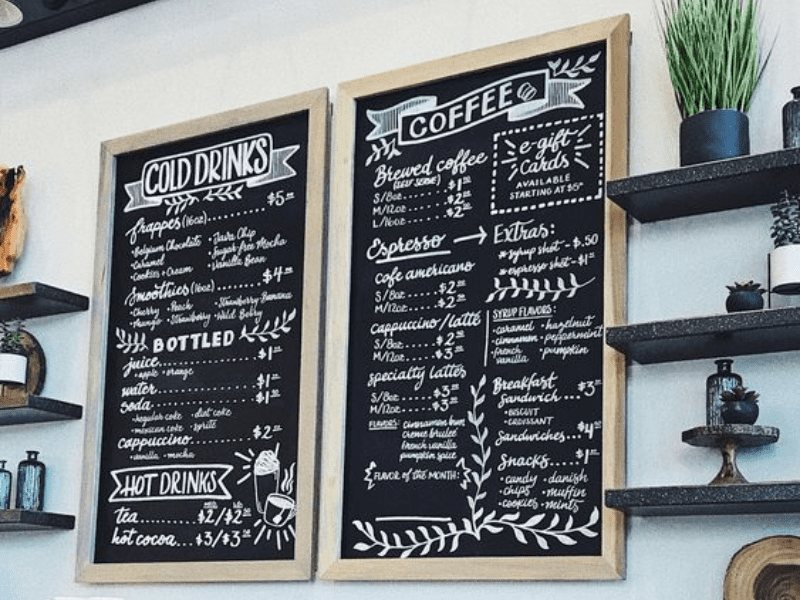 COLD DRINKS
frappes (16oz) $5
• Belgium Chocolate • Java Chip
• Caramel • Sugar-free Mocha
• Cookies + Cream • Vanilla Bean
Smoothies (16oz) $4
• Cherry • Peach • Strawberry-Banana
• Mango • Strawberry • Wild Berry
BOTTLED
juice $1
• apple • orange
water $1
soda $1
• regular coke • diet coke
• mexican coke • sprite
cappuccino $2
• vanilla • mocha
HOT DRINKS
tea $2/$2 50
hot cocoa $3/$3 50
COFFEE
Brewed coffee
(SELF SERVE)
S/8oz $1
M/12oz $2
L/16oz $2
e-gift
cards
AVAILABLE
STARTING AT $5
Espresso → Extras:
* syrup shot - $.50
* espresso shot - $1
cafe americano
S/8oz $2
M/12oz $2
cappuccino/latté
S/8oz $2
M/12oz $3
specialty lattés
S/8oz $3
M/12oz $3
FLAVORS: cinnamon bun
creme brulee
french vanilla
pumpkin spice
FLAVOR of the MONTH:
SYRUP FLAVORS:
• caramel • hazelnut
• cinnamon • peppermint
• french vanilla • pumpkin
Breakfast
Sandwich $3
• BISCUIT
• CROISSANT
Sandwiches $4
Snacks $1
• candy • danish
• chips • muffin
• cookies • mints